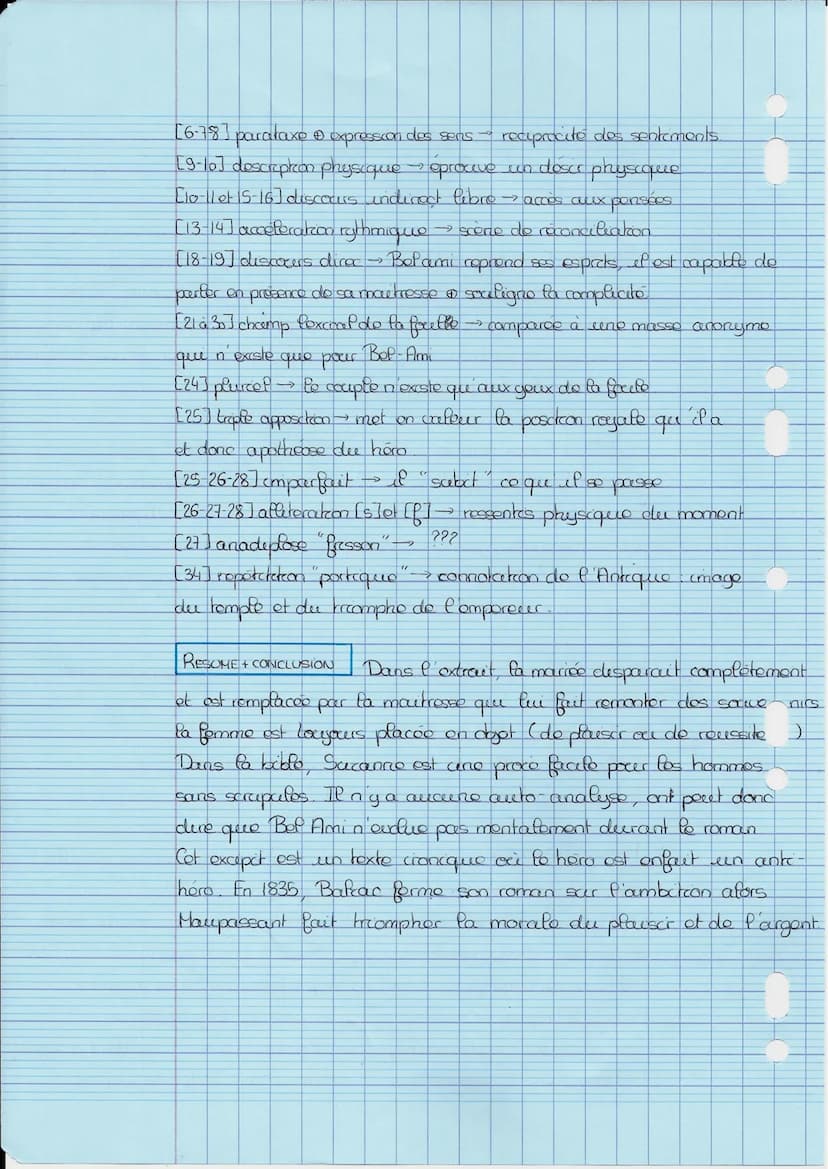 [6-7-8] parataxe ⊕ expression des sens → reciprocité des sentiments
[9-10] description physique → éprouve un désir physique
[10-11 et 15-16] discours indirect libre → accès aux pensées
[13-14] accéleration rythmique → scène de réconciliation
[18-19] discours direc → Bel ami reprend ses esprits, il est capable de
parler en présence de sa maitresse ⊕ souligne la complicité
[21 à 30] champ lexical de la foulle → comparée à une masse anonyme
que n'existe que pour Bel-Ami
[24] pluriel → le couple n'existe qu'aux yeux de la foule
[25] triple apposition → met en valeur la position royale qu'il a
et donc apothéose du héro
[25-26-28] imparfait → il "subit" ce qu'il se passe
[26-27-28] alliteration [s] et [f] → ressentis physique du moment
[27] anadiplose "frisson" → ???
[34] repetition "portique" → connotation de l'Antique : image
du temple et du triomphe de l'empereur.
RESUME + CONCLUSION Dans l'extrait, la mariée disparait complètement
et est remplacée par la maitresse que lui fait remonter des souvenirs
la femme est toujours placée en objet (de plaisir ou de reussite)
Dans la bible, Suzanne est une proie facile pour les hommes
sans scrupules. Il n'y a aucune auto-analyse, ont peut donc
dire que Bel Ami n'évolue pas mentalement durant le roman
Cet excipit est un texte ironique où le héro est enfait un anti-
héro. En 1835, Balzac ferme son roman sur l'ambition alors
Maupassant fait triompher la morale du plaisir et de l'argent